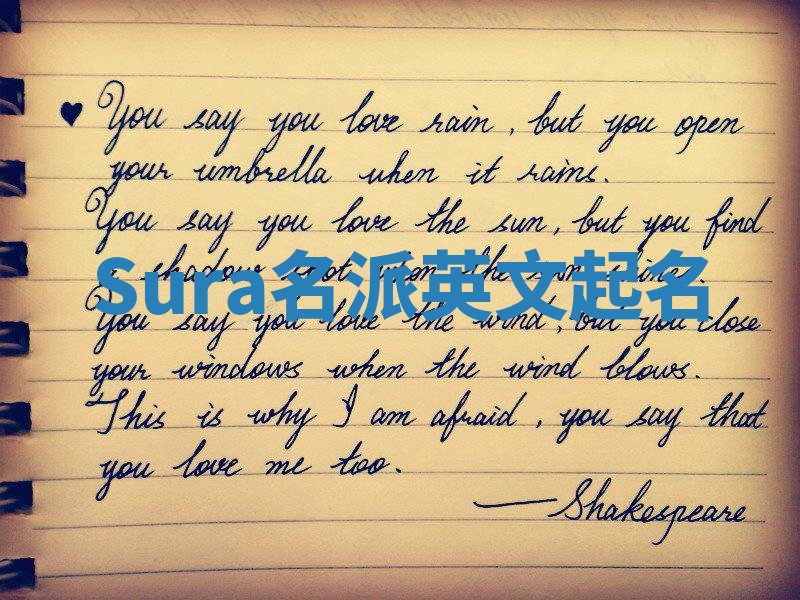 ♥ You say you love rain, but you open
your umbrella when it rains.
You say you love the sun, but you find
a shadow spot when the sun shines.
Sura名派英文起名
You say you love the wind, but you close
your windows when the wind blows.
This is why I am afraid, you say that
you love me too.
—Shakespeare